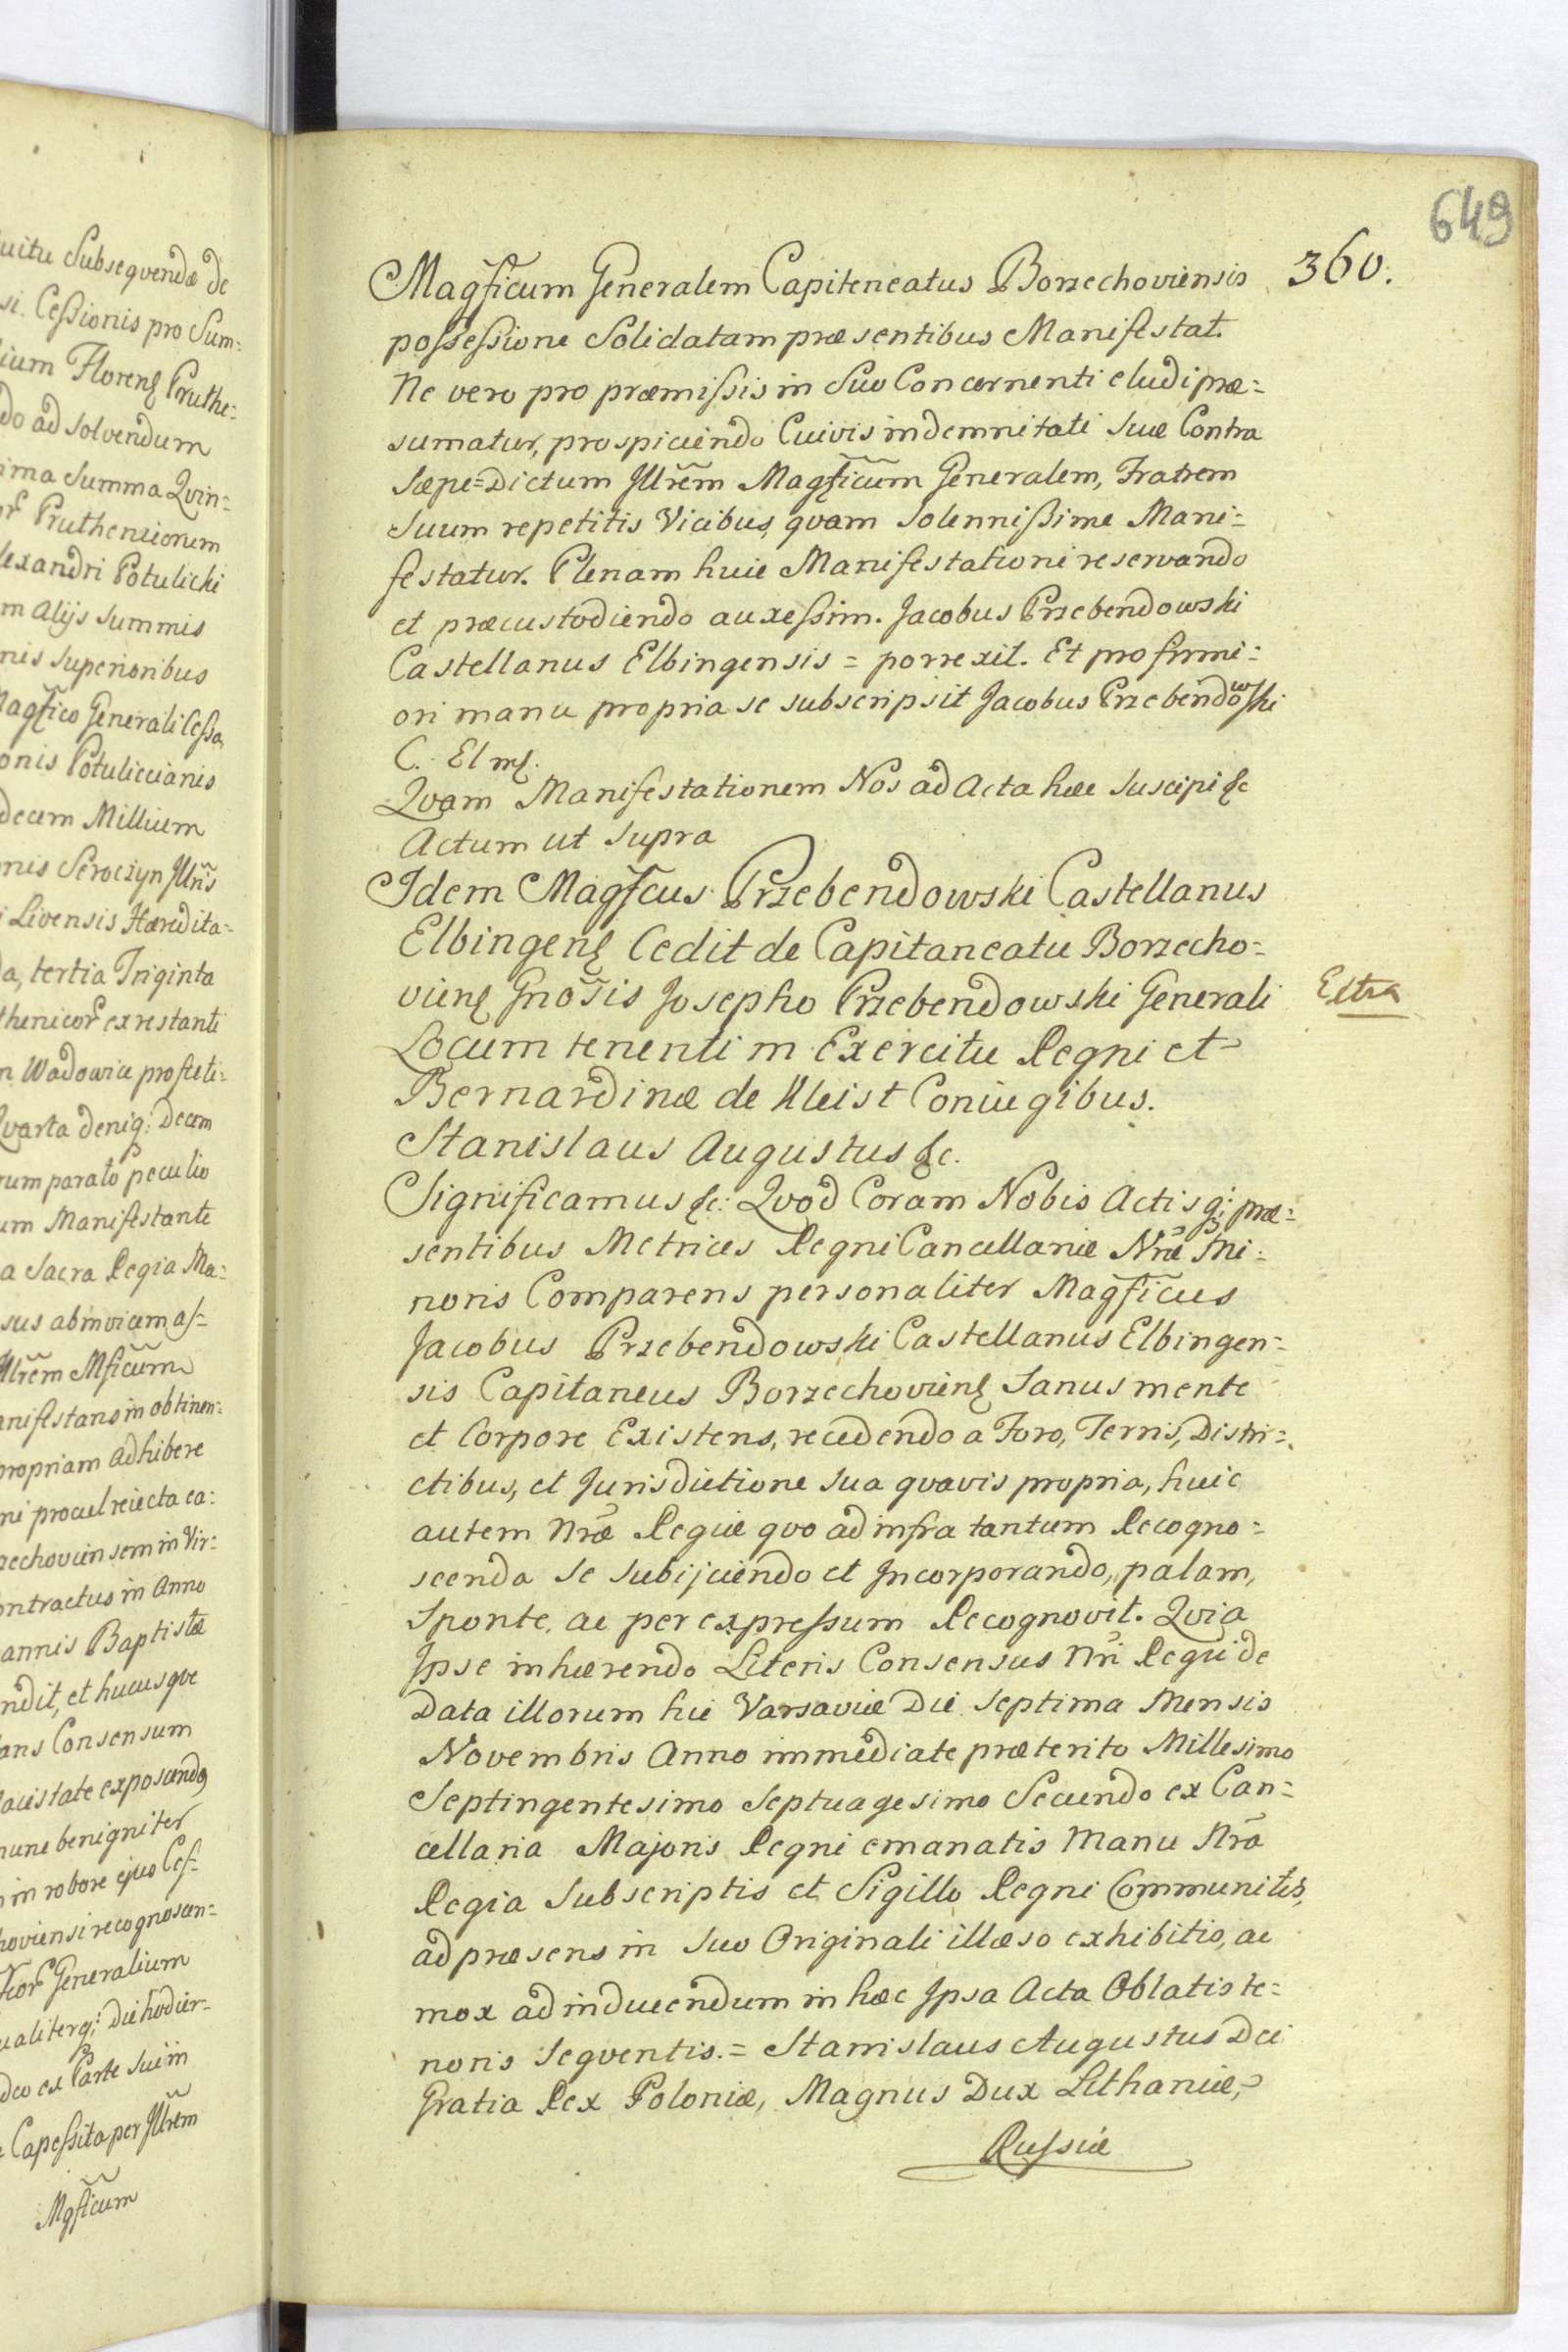 uitu Subsequendæ de
si. Cessionis pro Sum=
ium Florenς Pruthe=
do ad solvendum
ima Summa Qvin=
Pruthenicorum
lexandri Potulicki
m alijs Summis
nis superioribus
Magfico Generali Cessa
onis Potuliccianis
decem Millium
nis Seroczyn Illris
i Livensis Hæredita=
da, tertia Triginta
thenicor ex restanti
n Wadowice profiteti=
Qvarta deniq: Decem
rum parato peculio
um Manifestante
a Sacra Regia Ma=
sus abinvicem as=
Illrem Mficum
anifestans in obtinen=
propriam adhibere
ni procul reiecta ea=
rzechoviensem in Vir=
ontractus in Anno
annis Baptistæ
ndit, et hucusqve
ans Consensum
acistate exposcendo
nunc benigniter
in robore ejus Ces=
hoviensi recognoscen=
ficor Generalium
ualiterq; Die hodier=
deo ex Parte Sui in
Capessita per Illrem
Mgficum
649
360.
Magficum Generalem Capiteneatus Borzechoviensis
possessione Solidatam præsentibus Manifestat.
Ne vero pro præmissis in Suo Concernenti eludi præ=
sumatur, prospiciendo Cuivis indemnitati Suæ Contra
Sæpe=Dictum Illrem Magficum Generalem, Fratrem
Suum repetitis Vicibus, qvam Solennissime Mani=
festatur. Plenam huic Manifestationi reservando
et præcustodiendo auxessim. Jacobus Przebendowski
Castellanus Elbingensis = porrexit. Et pro firmi=
ori manu propria se subscripsit Jacobus Przebendowski
C. Elmς.
Qvam Manifestationem Nos ad Acta hæc Suscipi &c
Actum ut Supra
Idem Magfcus Przebendowski Castellanus
Elbingenς Cedit de Capitaneatu Borzecho=
vienς Gnosis Josepho Przebendowski Generali
Locum tenenti in Exercitu Regni et
Bernardinæ de Kleist Coniugibus.
Extra
Stanislaus Augustus &c.
Significamus &c: Qvod Coram Nobis Actisq; præ=
sentibus Metrices Regni Cancellariæ Nræ Mi=
noris Comparens personaliter Magficus
Jacobus Przebendowski Castellanus Elbingen=
sis Capitaneus Borzechovienς Sanus mente
et Corpore Existens, recedendo a Foro, Terris, Distri=
ctibus, et Jurisdictione Sua qvavis propria, huic
autem Nræ Regiæ qvo ad infra tantum Recogno=
scenda Se Subijciendo et Incorporando, palam,
Sponte, ac per expressum Recognovit. Qvia
Ipse inhærendo Literis Consensus Nri Regii de
Data illorum hic Varsaviæ Die Septima Mensis
Novembris Anno immediate præterito Millesimo
Septingentesimo Septuagesimo Secundo ex Can=
cellaria Majoris Regni emanatis Manu Nra
Regia Subscriptis et Sigillo Regni Communitis,
ad præsens in Suo Originali illæso exhibitis, ac
mox ad inducendum in hæc Ipsa Acta Oblatis te=
noris Seqventis. = Stanislaus Augustus Dei
Gratia Rex Poloniæ, Magnus Dux Lithaniæ,
Russiæ